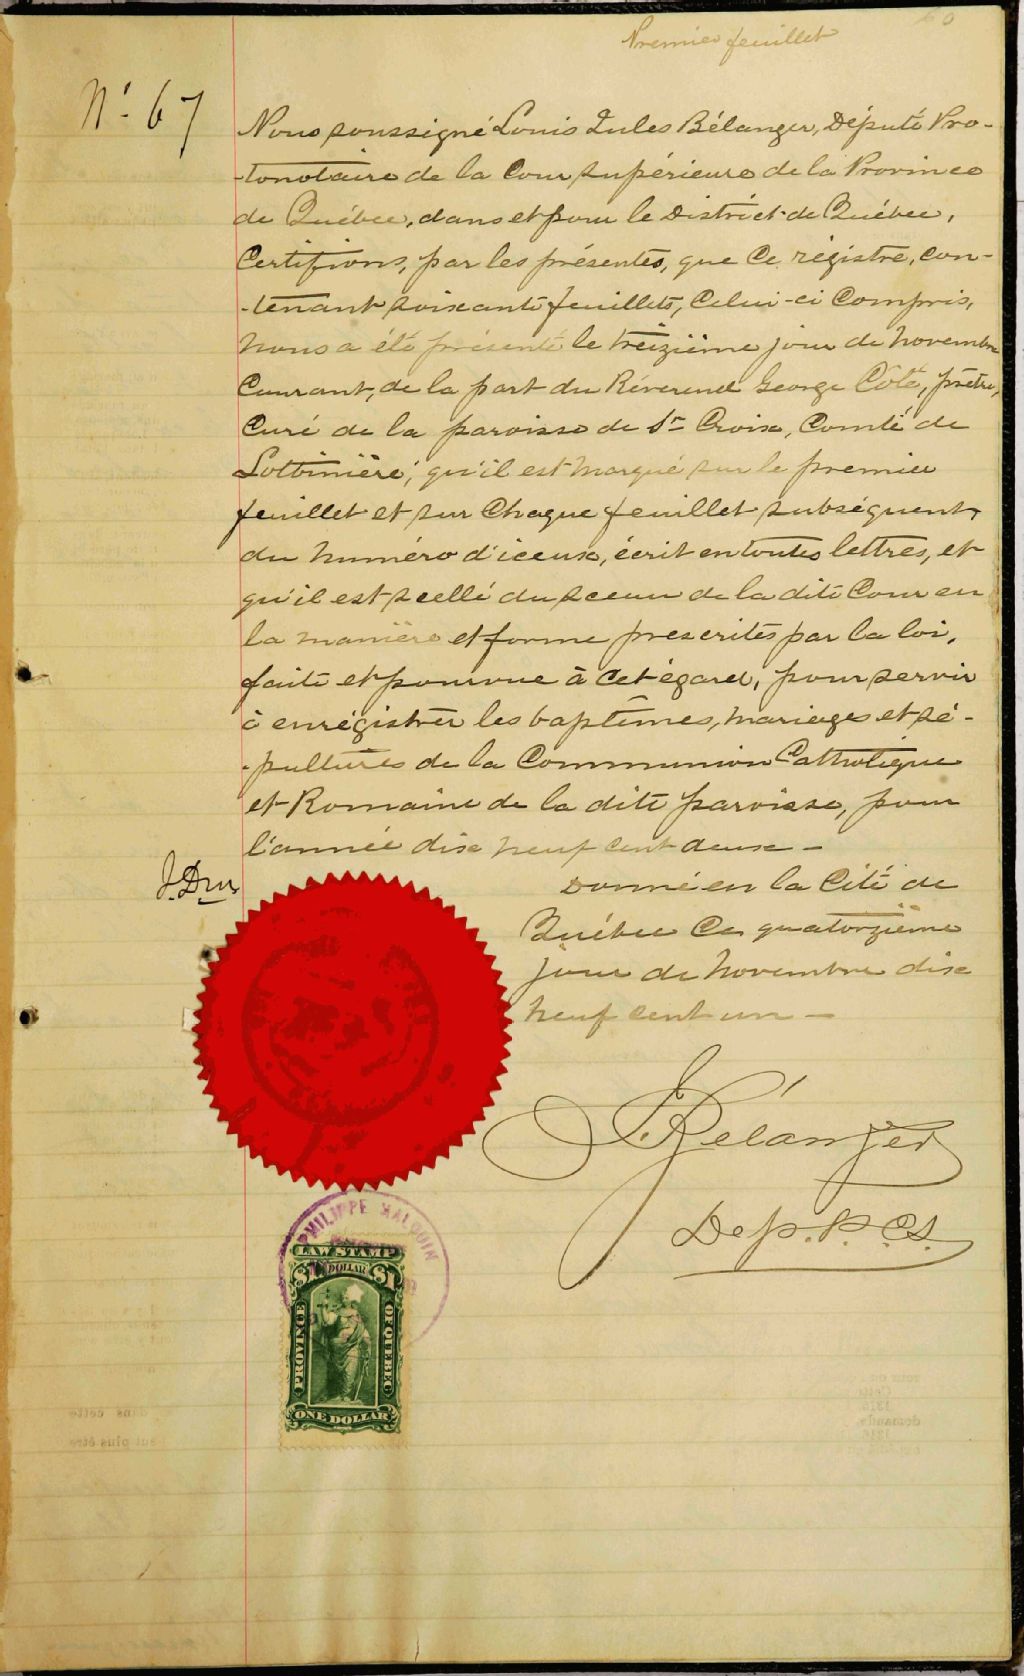 60
Premier feuillet
No 67
Nous soussigné Louis Jules Bélanger, Député Pro-
-tonotaire de la Cour supérieure de la Province
de Québec, dans et pour le District de Québec,
Certifions, par les présentes, que ce régistre, con-
-tenant soixante feuillets, celui-ci compris,
nous a été présenté le treizième jour de novembre
Courant, de la part du Révérend George Côté, prêtre,
Curé de la paroisse de Ste Croix, Comté de
Lotbinière; qu'il est marqué sur le premier
feuillet et sur chaque feuillet subséquent
du numéro d'iceux, écrit en toutes lettres, et
qu'il est scellé du sceau de la dite Cour en
la manière et forme prescrites par la loi,
faite et pourvue à cet égard, pour servir
à enrégistrer les baptêmes, mariages et sé-
-pultures de la Communion Catholique
et Romaine de la dite paroisse, pour
l'année dix neuf cent deux —
Donné en la Cité de
Québec ce quatorzième
jour de novembre dix
neuf cent un —
Bélanger
Dep. P. C.S.
PHILIPPE MALOUIN
LAW STAMP
$1 DOLLAR $1
PROVINCE
OF QUEBEC
ONE DOLLAR